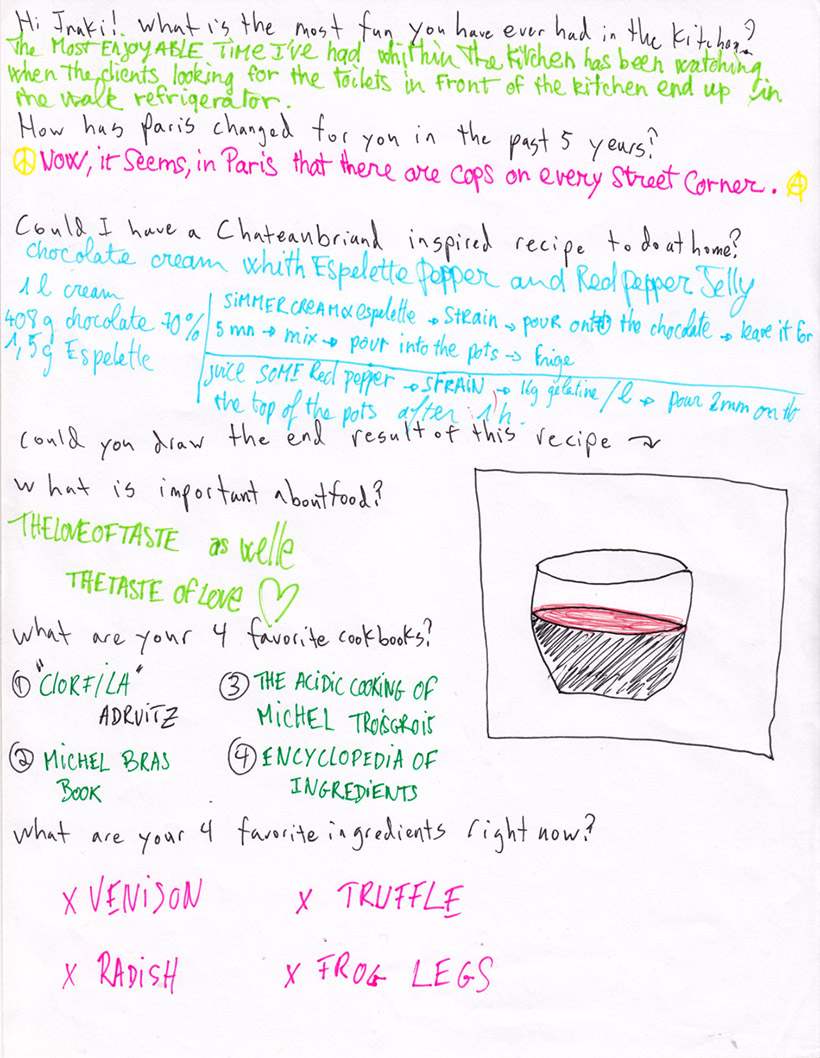 Hi Inaki! What is the most fun you have ever had in the kitchen?
The Most ENJOYABLE TIME I've had whithin The Kitchen has been watching
when The clients looking for the toilets in front of the kitchen end up in
the walk refrigerator.
How has Paris changed for you in the past 5 years?
Now, it seems, in Paris that there are cops on every Street Corner.
Could I have a Chateaubriand inspired recipe to do at home?
chocolate cream whith Espelette Pepper and Red pepper Jelly
1 l cream
408g chocolate 70%
1,5g Espelette
SiMMER CREAM & espelette → Strain → pour onto the chocolate → leave it for
5 mn → mix → pour into the pots → Frige
juice SOME Red pepper → STRAIN → 16g gelatine / l → pour 2mm on th
the top of the pots after 1h.
Could you draw the end result of this recipe
What is important about food?
THE LOVE OF TASTE as welle
THE TASTE OF LOVE
What are your 4 favorite cookbooks?
① "CLORFILA"
ADRUITZ
② MICHEL BRAS
BOOK
③ THE ACIDIC COOKING OF
MICHEL TROISGROIS
④ ENCYCLOPEDIA OF
INGREDIENTS
What are your 4 favorite ingredients right now?
x VENiSON
x TRUFFLE
x RADiSH
x FROG LEGS